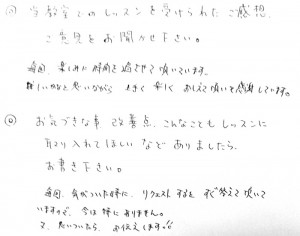 ◎ 当教室でのレッスンを受けられたご感想、
ご意見をお聞かせ下さい。
毎回、楽しみに時間を過させて頂いています。
難しいかなと思いながら 上手く 楽しく おしえて頂いて感謝しています。
◎ お気づきな事、改善点、こんなこともレッスンに
取り入れてほしい などありましたら、
お書き下さい。
毎回、気がついた時に、リクエストすると すぐ答えて頂いて
いますので、今は特にありません。
又、思いついたら、お伝えします。